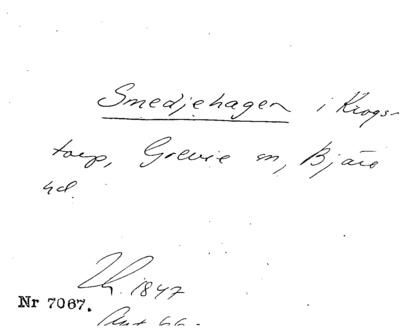 Smedjehagen i Krogs-
torp, Grevie sn, Bjäre
hd.
1847
Nr 7067.